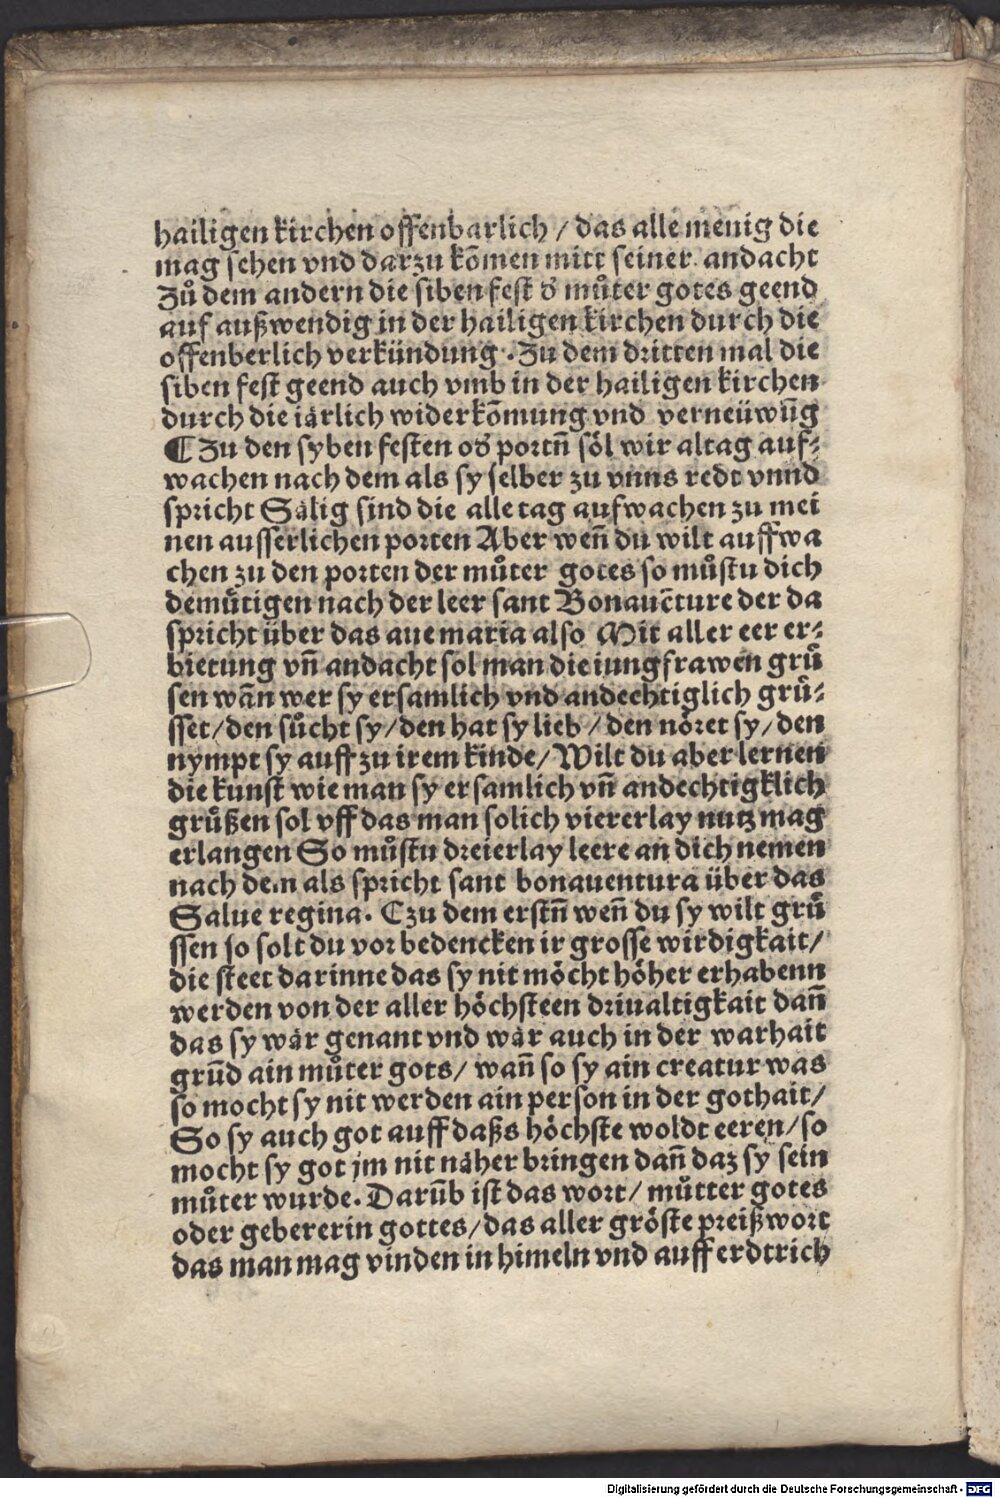 hailigen kirchen offenbarlich / das alle menig die
mag sehen vnd darzu kōmen mitt seiner andacht
Zů dem andern die siben fest d' můter gotes geend
auf außwendig in der hailigen kirchen durch die
offenberlich verkündung . Zu dem dritten mal die
siben fest geend auch vmb in der hailigen kirchen
durch die iårlich widerkōmung vnd verneüwūg
¶ Zu den syben festen od' portn̄ söl wir altag auf⸗
wachen nach dem als sy selber zu vnns redt vnnd
spricht Sålig sind die alle tag aufwachen zu mei
nen ausserlichen porten Aber wen̄ du wilt auffwa
chen zu den porten der můter gotes so můstu dich
demůtigen nach der leer sant Bonauēture der da
spricht über das aue maria also Mit aller eer er⸗
bietung vn̄ andacht sol man die iungfrawen grů
sen wān wer sy ersamlich vnd andechtiglich grů⸗
sset / den sůcht sy / den hat sy lieb / den nöret sy / den
nympt sy auff zu irem kinde / Wilt du aber lernen
die kunst wie man sy ersamlich vn̄ andechtigklich
grůßen sol vff das man solich viererlay nutz mag
erlangen So můstu dreierlay leere an dich nemen
nach dem als spricht sant bonauentura über das
Salue regina . ¶ zu dem erstn̄ wen̄ du sy wilt grů
ssen so solt du vor bedencken ir grosse wirdigkait /
die steet darinne das sy nit möcht höher erhabenn
werden von der aller höchsteen driualtigkait dan̄
das sy wår genant vnd wår auch in der warhait
grūd ain můter gots / wan̄ so sy ain creatur was
so mocht sy nit werden ain person in der gothait /
So sy auch got auff daßs höchste woldt eeren / so
mocht sy got jm nit nåher bringen dan̄ daz sy sein
můter wurde . Darūb ist das wort / můtter gotes
oder gebererin gottes / das aller gröste preißwort
das man mag vinden in himeln vnd auff erdtrich
Digitalisierung gefördert durch die Deutsche Forschungsgemeinschaft - DFG